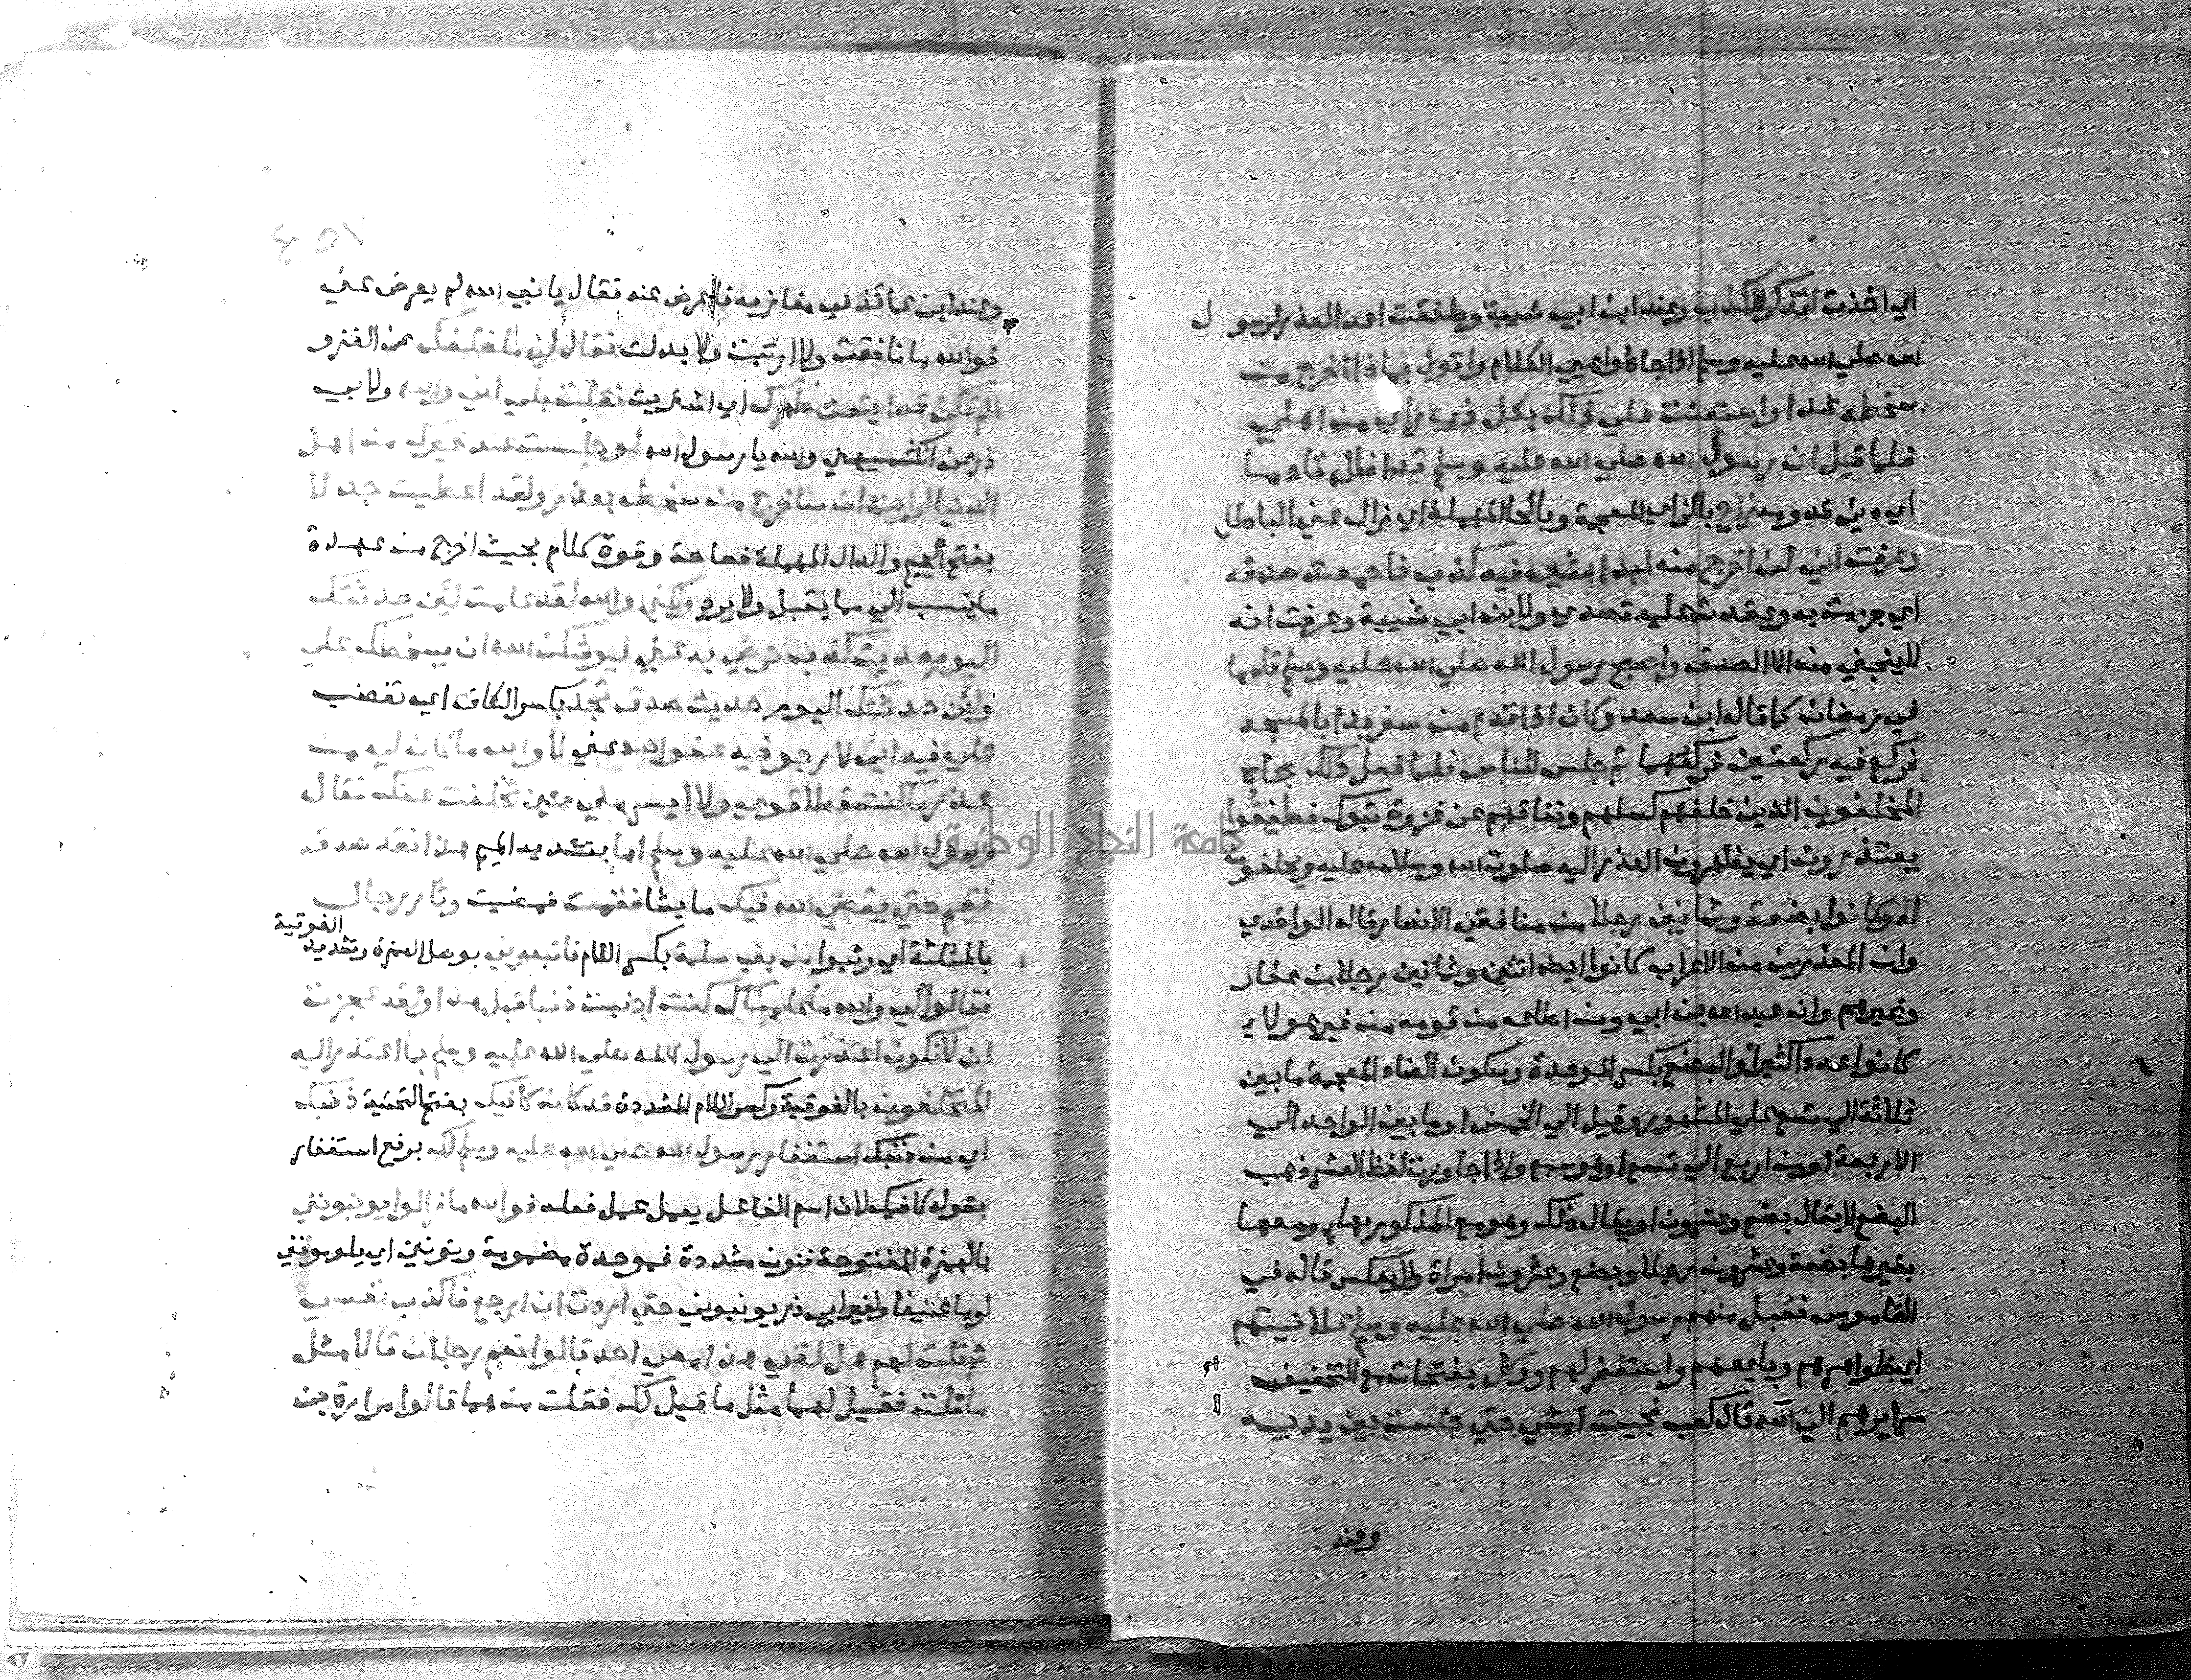 اي اخذت اتذكر الكذب وعند ابن ابي شيبة وطفقت اعد العذر لرسول
الله صلي الله عليه وسلم اذا جاء واهيي الكلام واقول بماذا اخرج من
سخطه غدا واستعنت علي ذلك بكل ذي راي من اهلي
فلما قيل ان رسول الله صلي الله عليه وسلم قد اظل قادما
اي دني غدوه زاح بالزاي المعجمة وبالحا المهملة اي زال عني الباطل
وعرفت اني لن اخرج منه ابدا بشي فيه كذب فاجمعت صدقه
اي جزمت به وعقدت عليه قصدي ولابن ابي شيبة وعرفت انه
لا ينجيني منه الا الصدق واصبح رسول الله صلي الله عليه وسلم قادما
في رمضان كما قاله ابن سعد وكان اذا قدم من سفر بدا بالمسجد
فركع فيه ركعتين فركعهما ثم جلس للناس فلما فعل ذلك جاه
المخلفون الذين خلفهم كسلهم ونفاقهم عن غزوة تبوك فطفقوا
يعتذرون اي يظهرون العذر اليه صلوت الله وسلامه عليه ويحلفون
له وكانوا بضعة وثمانين رجلا من منافقي الانصار قاله الواقدي
وان المعذرين من الاعراب كانوا ايضا اثنين وثمانين رجلا من غفار
وغيرهم وان عبد الله بن ابي ومن اطاعه من قومه من غير هولاء
كانوا عددا كثيرا والبضع بكسر الموحدة وسكون الضاد المعجمة ما بين
ثلاثة الي تسع علي المشهور وقيل الي الخمس او ما بين الواحد الي
الاربعة او من اربع الي تسع او هو سبع واذا جاوزت لفظ العشر ذهب
البضع لا يقال بضع وعشرون او يقال ذلك وهو مع المذكر بها ومعها
بغيرها بضعة وعشرون رجلا وبضع وعشرون امراة ولا يعكس قاله في
القاموس فقبل منهم رسول الله صلي الله عليه وسلم علانيتهم
اي ظواهرهم وبايعهم واستغفر لهم ووكل بفتحات مع التخفيف
سرايرهم الي الله قال كعب فجيت امشي حتي جلست بين يديه
وعند
٤٥٧
وعند ابن عائذ في مغازيه فاعرض عنه فقال يا نبي الله لم يعرض عني
فوالله ما نافقت ولا ارتبت ولا بدلت فقال لي ما خلفك عن الغزو
الم تكن قد ابتعت ظهرك اي اشتريت فقلت بلي اني والله ولابي
ذر عن الكشميهني والله يا رسول الله لو جلست عند غيرك من اهل
الدنيا لرايت ان ساخرج من سخطه بعذر ولقد اعطيت جدلا
بفتح الجيم والدال المهملة فصاحة وقوة كلام بحيث اخرج من عهدة
ما ينسب الي مما يقبل ولا يرد ولكني والله لقد علمت لئن حدثتك
اليوم حديث كذب ترضي به عني ليوشكن الله ان يسخطك علي
ولئن حدثتك اليوم حديث صدق تجد بكسر الكاف اي تغضب
علي فيه اني لارجو فيه عفو الله عني لا والله ما كان لي من
عذر ما كنت قط اقوي ولا ايسر مني حين تخلفت عنك فقال
رسول الله صلي الله عليه وسلم اما بتشديد الميم هذا فقد صدق
فقم حتي يقضي الله فيك ما يشا فقمت فمضيت وثار رجال
بالمثلثة اي وثبوا من بني سلمة بكسر اللام فاتبعوني بوصل الهمزة وتشديد الفوقية
فقالوا لي والله ما علمناك كنت اذنبت ذنبا قبل هذا ولقد عجزت
ان لا تكون اعتذرت الي رسول الله صلي الله عليه وسلم بما اعتذر اليه
المتخلفون بالفوقية وكسر اللام المشددة قد كان كافيك بفتح التحتية ذنبك
اي من ذنبك استغفار رسول الله صلي الله عليه وسلم لك برفع استغفار
بقوله كافيك لان اسم الفاعل يعمل عمل فعله فوالله ما زالوا يونبونني
بالهمزة المفتوحة فنون مشددة فموحدة مضمومة ونونين اي يلومونني
لوما عنيفا ولغير ابي ذر يونبوني حتي اردت ان ارجع فاكذب نفسي
ثم قلت لهم هل لقي هذا معي احد قالوا نعم رجلان قالا مثل
ما قلت فقيل لهما مثل ما قيل لك فقلت من هما قالوا مرارة بن
جامعة النجاح الوطنية